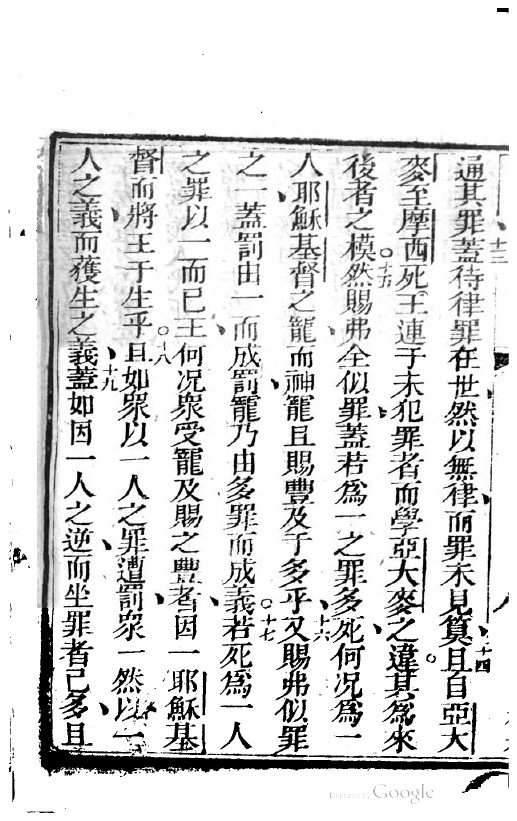 通其罪蓋待律罪在世然以無律而罪未見算且自亞大
麥至摩西死王連于未犯罪者而學亞大麥之違其為來
後者之模然賜弗全似罪蓋若為一之罪多死何況為一
人耶穌基督之寵而神寵且賜豐及于多乎又賜弗似罪
之一蓋罰由一而成罰寵乃由多罪而成義若死為一人
之罪以一而已王何况衆受寵及賜之豐者因一耶穌基
督而將王于生乎且如衆以一人之罪遭罰衆一然以一
人之義而獲生之義蓋如因一人之逆而坐罪者已多且
十三
十四
十五
十六
十七
十八
十九
Digitized by Google